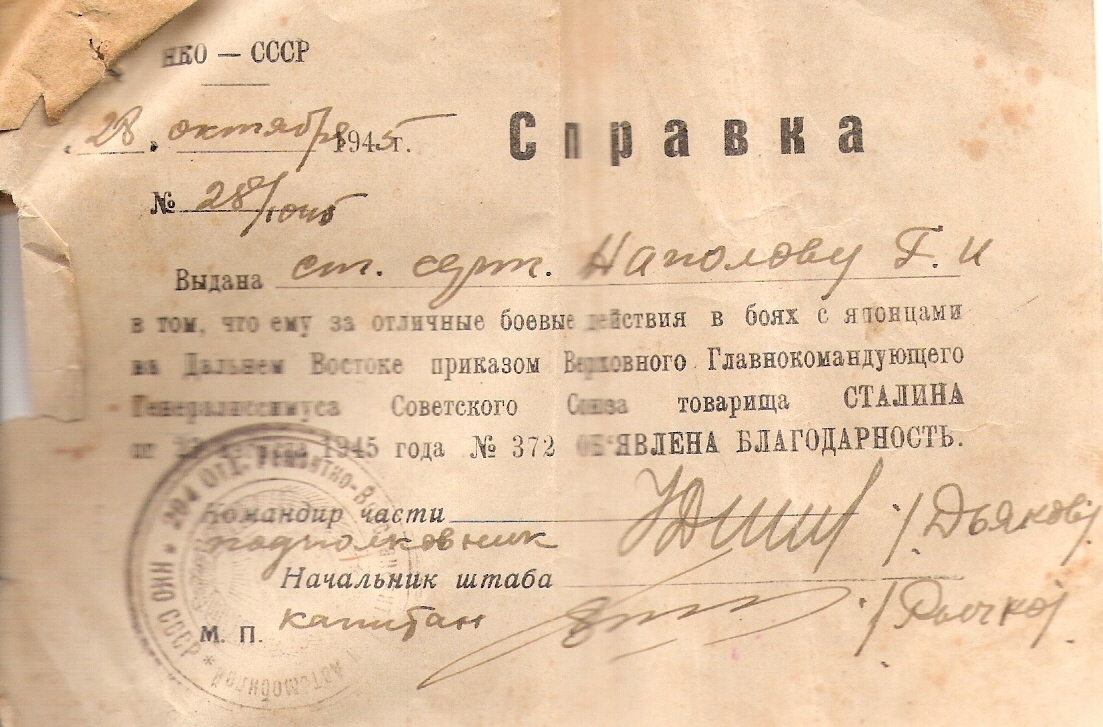 НКО — СССР
28 октября 1945 г.
Справка
№ 28/
Выдана ст. серж. Наполову Г. И
в том, что ему за отличные боевые действия в боях с японцами
на Дальнем Востоке приказом Верховного Главнокомандующего
Генералиссимуса Советского Союза товарища СТАЛИНА
от 1945 года № 372 ОБ'ЯВЛЕНА БЛАГОДАРНОСТЬ.
Командир части /Дьяков/
подполковник
Начальник штаба
М. П. капитан
НКО СССР * 204 ОТД. РЕМОНТНО-